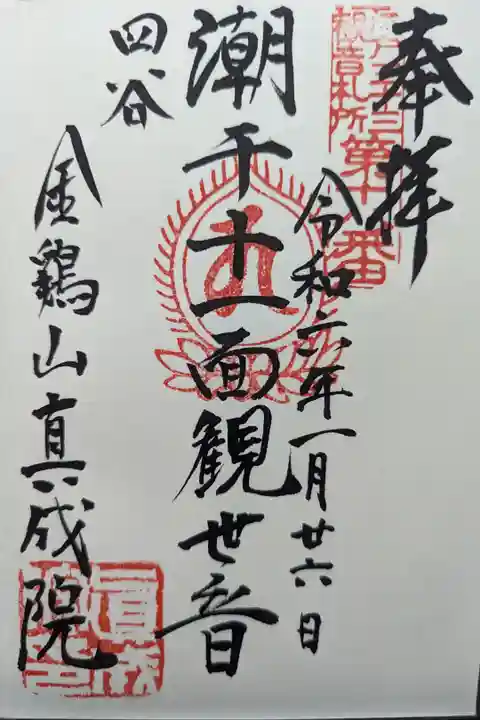 奉拝
江戸三十三
観音札所第十八番
令和六年一月廿六日
潮干十一面観世音
四谷
金鶏山真成院